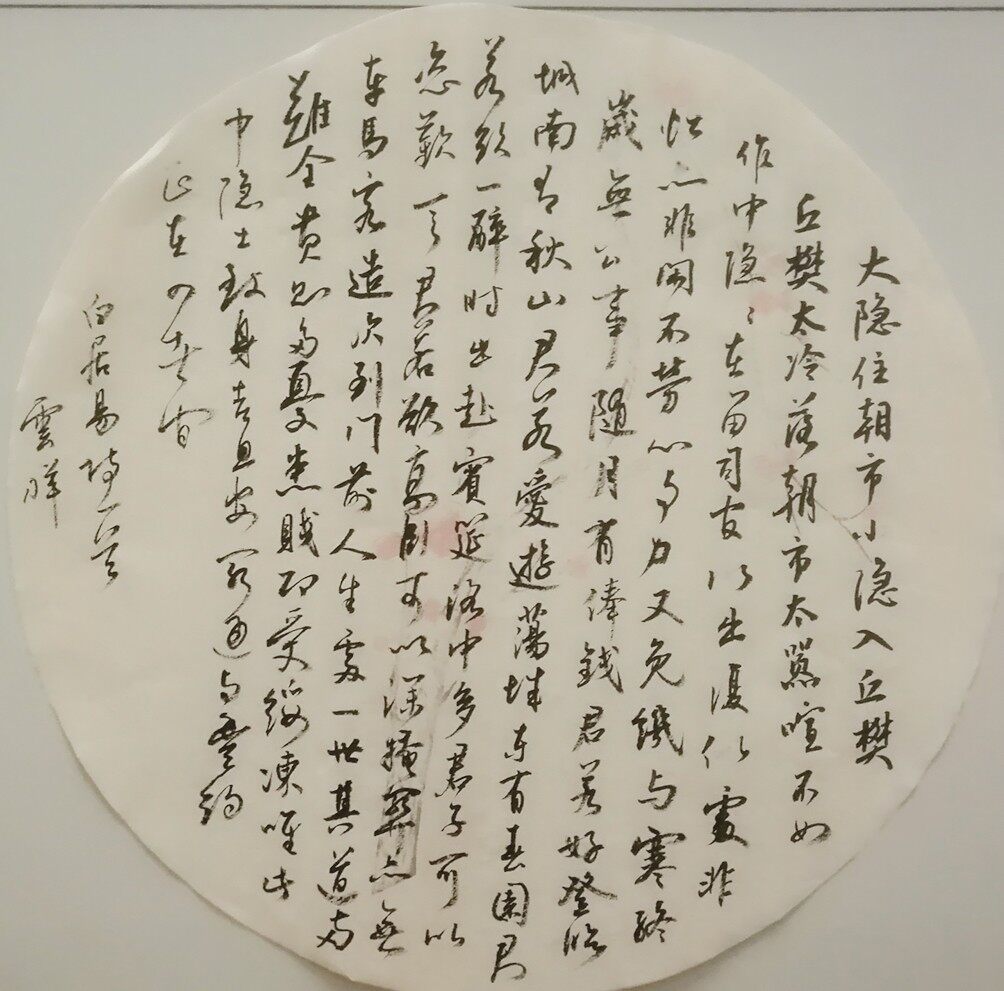 大隐住朝市小隐入丘樊
丘樊太冷落朝市太嚣喧不如
作中隐〻在留司官似出復似處非
忙亦非闲不劳心与力又免饑与寒終
歲無公事隨月有俸錢君若好登临
城南有秋山君若愛遊蕩城东有春園君
若欲一醉时出赴賓筵洛中多君子可以
恣歡言君若欲高卧可以深掩關亦無
车馬客造次到门前人生處一世其道
難全貴则多憂患賤即受餒凍唯此
中隐士致身吉且安窮通与豐约
正在四者间
白居易诗一首
雲祥